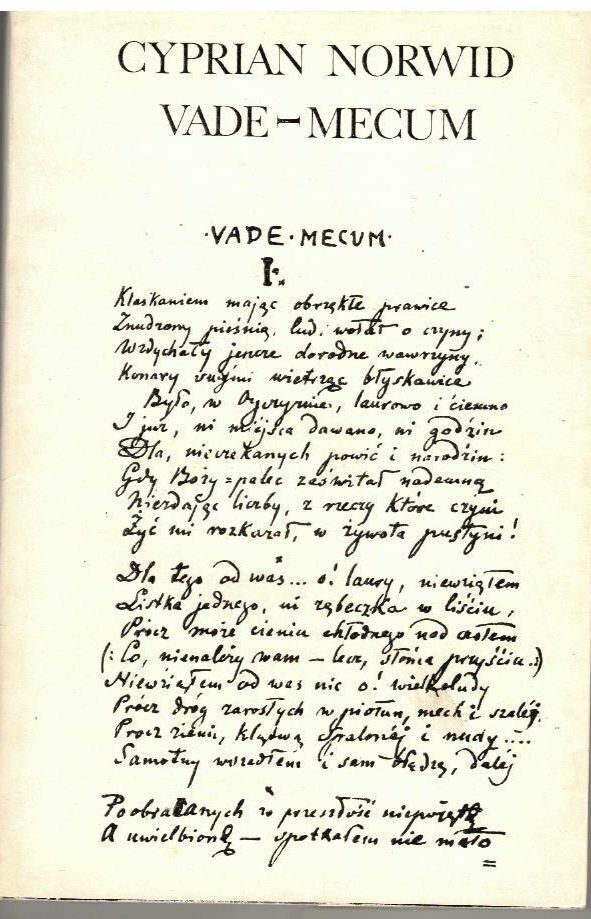 CYPRIAN NORWID
VADE-MECUM
·VADE·MECUM·
I.
Klaskaniem mając obrzękłe prawice
Znudzony pieśnią, lud, wołał o czyny;
Wzdychały jeszcze dorodne wawrzyny,
Konary swymi wietrząc błyskawice
Było, w Ojczyznie, laurowo i ciemno
I już, ni miejsca dawano, ni godzin
Dla, nieczekanych powić i narodzin:
Gdy Boży=palec zaświtał nademną
Nierdając liczby, z rzeczy które czyni
Żyć mi rozkazał, w żywota pustyni!
Dla tego od was... o! laury, niewziąłem
Listka jednego, ni ząbeczka w liściu,
Prócz może cieniu chłodnego nad czołem
(:Co, nienależy wam — lecz, słońca przyściu..:)
Niewziąłem od was nic o! wielkoludy
Prócz dróg zarosłych w piołun, mech i szaléj,
Prócz ziemi, klątwą spalonéj i nudy....
Samotny wszedłem i sam błądzę, daléj
Poobracanych w przeszłość niepojętą
A uwielbioną — spotkałem nie mało